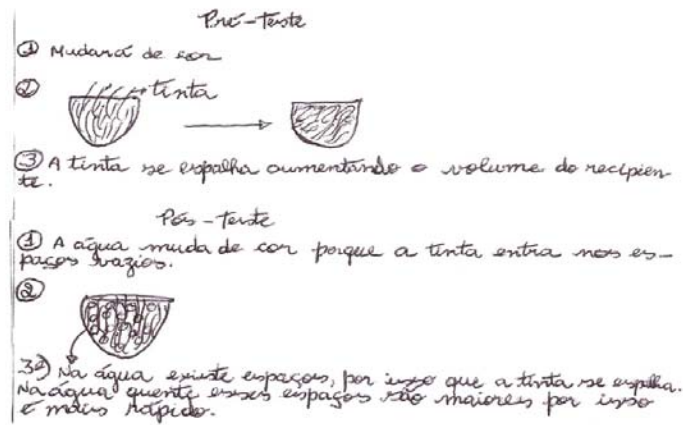 Pré-teste
① Mudará de cor
② tinta
③ A tinta se espalha aumentando o volume do recipien-
te.
Pós-teste
① A água muda de cor porque a tinta entra nos es-
paços vazios.
②
3º) Na água existe espaços, por isso que a tinta se espalha.
Na água quente esses espaços são maiores por isso
é mais rápido.